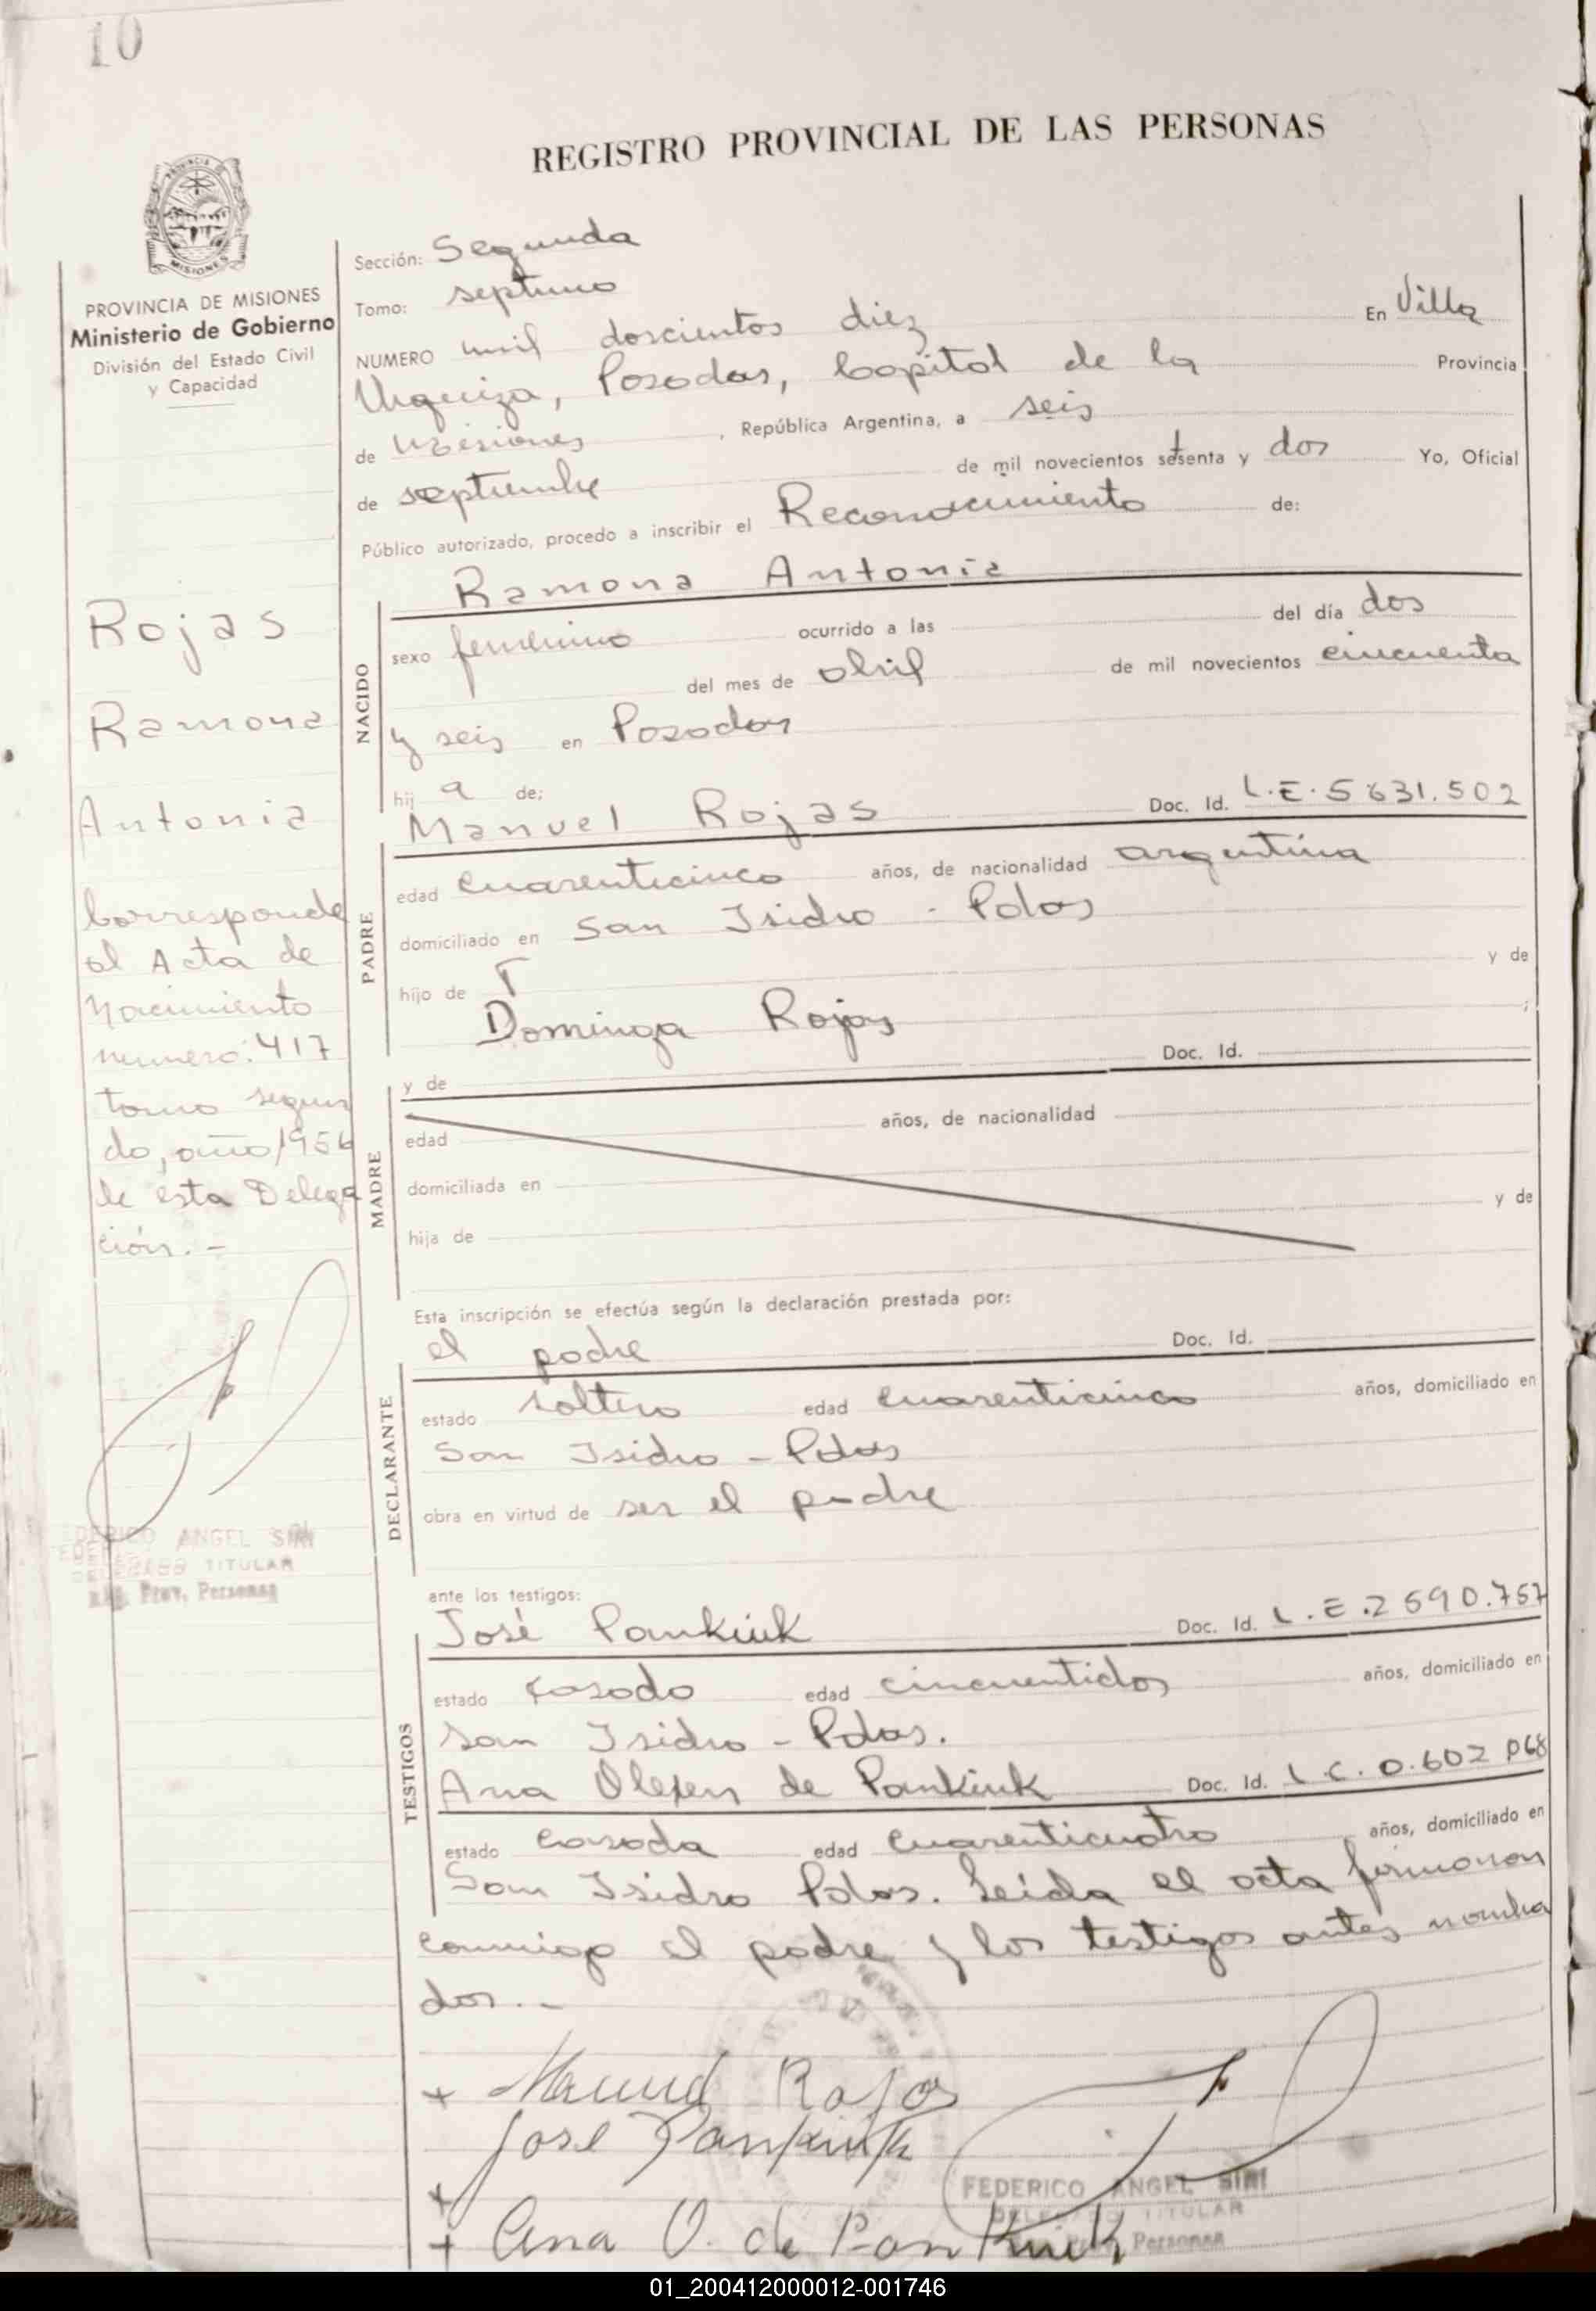 10
REGISTRO PROVINCIAL DE LAS PERSONAS
PROVINCIA DE MISIONES
Ministerio de Gobierno
División del Estado Civil
y Capacidad
Sección: Segunda
Tomo: septimo
NUMERO mil doscientos diez En Villa
Urquiza, Posadas, Capital de la Provincia
de Misiones, República Argentina, a seis
de septiembre de mil novecientos setenta y dos Yo, Oficial
Público autorizado, procedo a inscribir el Reconocimiento de:
Rojas
Ramona
Antonia
Corresponde
al Acta de
Nacimiento
numero: 417
tomo segun
do, año 1956
de esta Delega
ción.-
FEDERICO ANGEL SIRI
DELEGADO TITULAR
Reg. Prov. Personas
NACIDO
Ramona Antonia
sexo femenino ocurrido a las del día dos
del mes de abril de mil novecientos cincuenta
y seis en Posadas
hij a de:
PADRE
Manuel Rojas Doc. Id. L.E. 5631.502
edad cuarenticinco años, de nacionalidad argentina
domiciliado en San Isidro - Pdas
hijo de y de
Dominga Rojas ;
MADRE
y de Doc. Id.
edad años, de nacionalidad
domiciliada en
hija de y de
Esta inscripción se efectúa según la declaración prestada por:
DECLARANTE
el padre Doc. Id.
estado soltero edad cuarenticinco años, domiciliado en
San Isidro - Pdas
obra en virtud de ser el padre
ante los testigos:
TESTIGOS
José Pankiuk Doc. Id. L.E. 2590.757
estado casado edad cincuentidos años, domiciliado en
San Isidro - Pdas.
Ana de Pankiuk Doc. Id. L.C. 0.602 068
estado casada edad cuarenticuatro años, domiciliado en
San Isidro Pdas. Leida el acta firmaron
conmigo el padre y los testigos antes nombra
dos.-
+ Manuel Rojas
José Pankiuk
+
+ Ana O. de Pankiuk
FEDERICO ANGEL SIRI
DELEGADO TITULAR
Personas
01_200412000012-001746